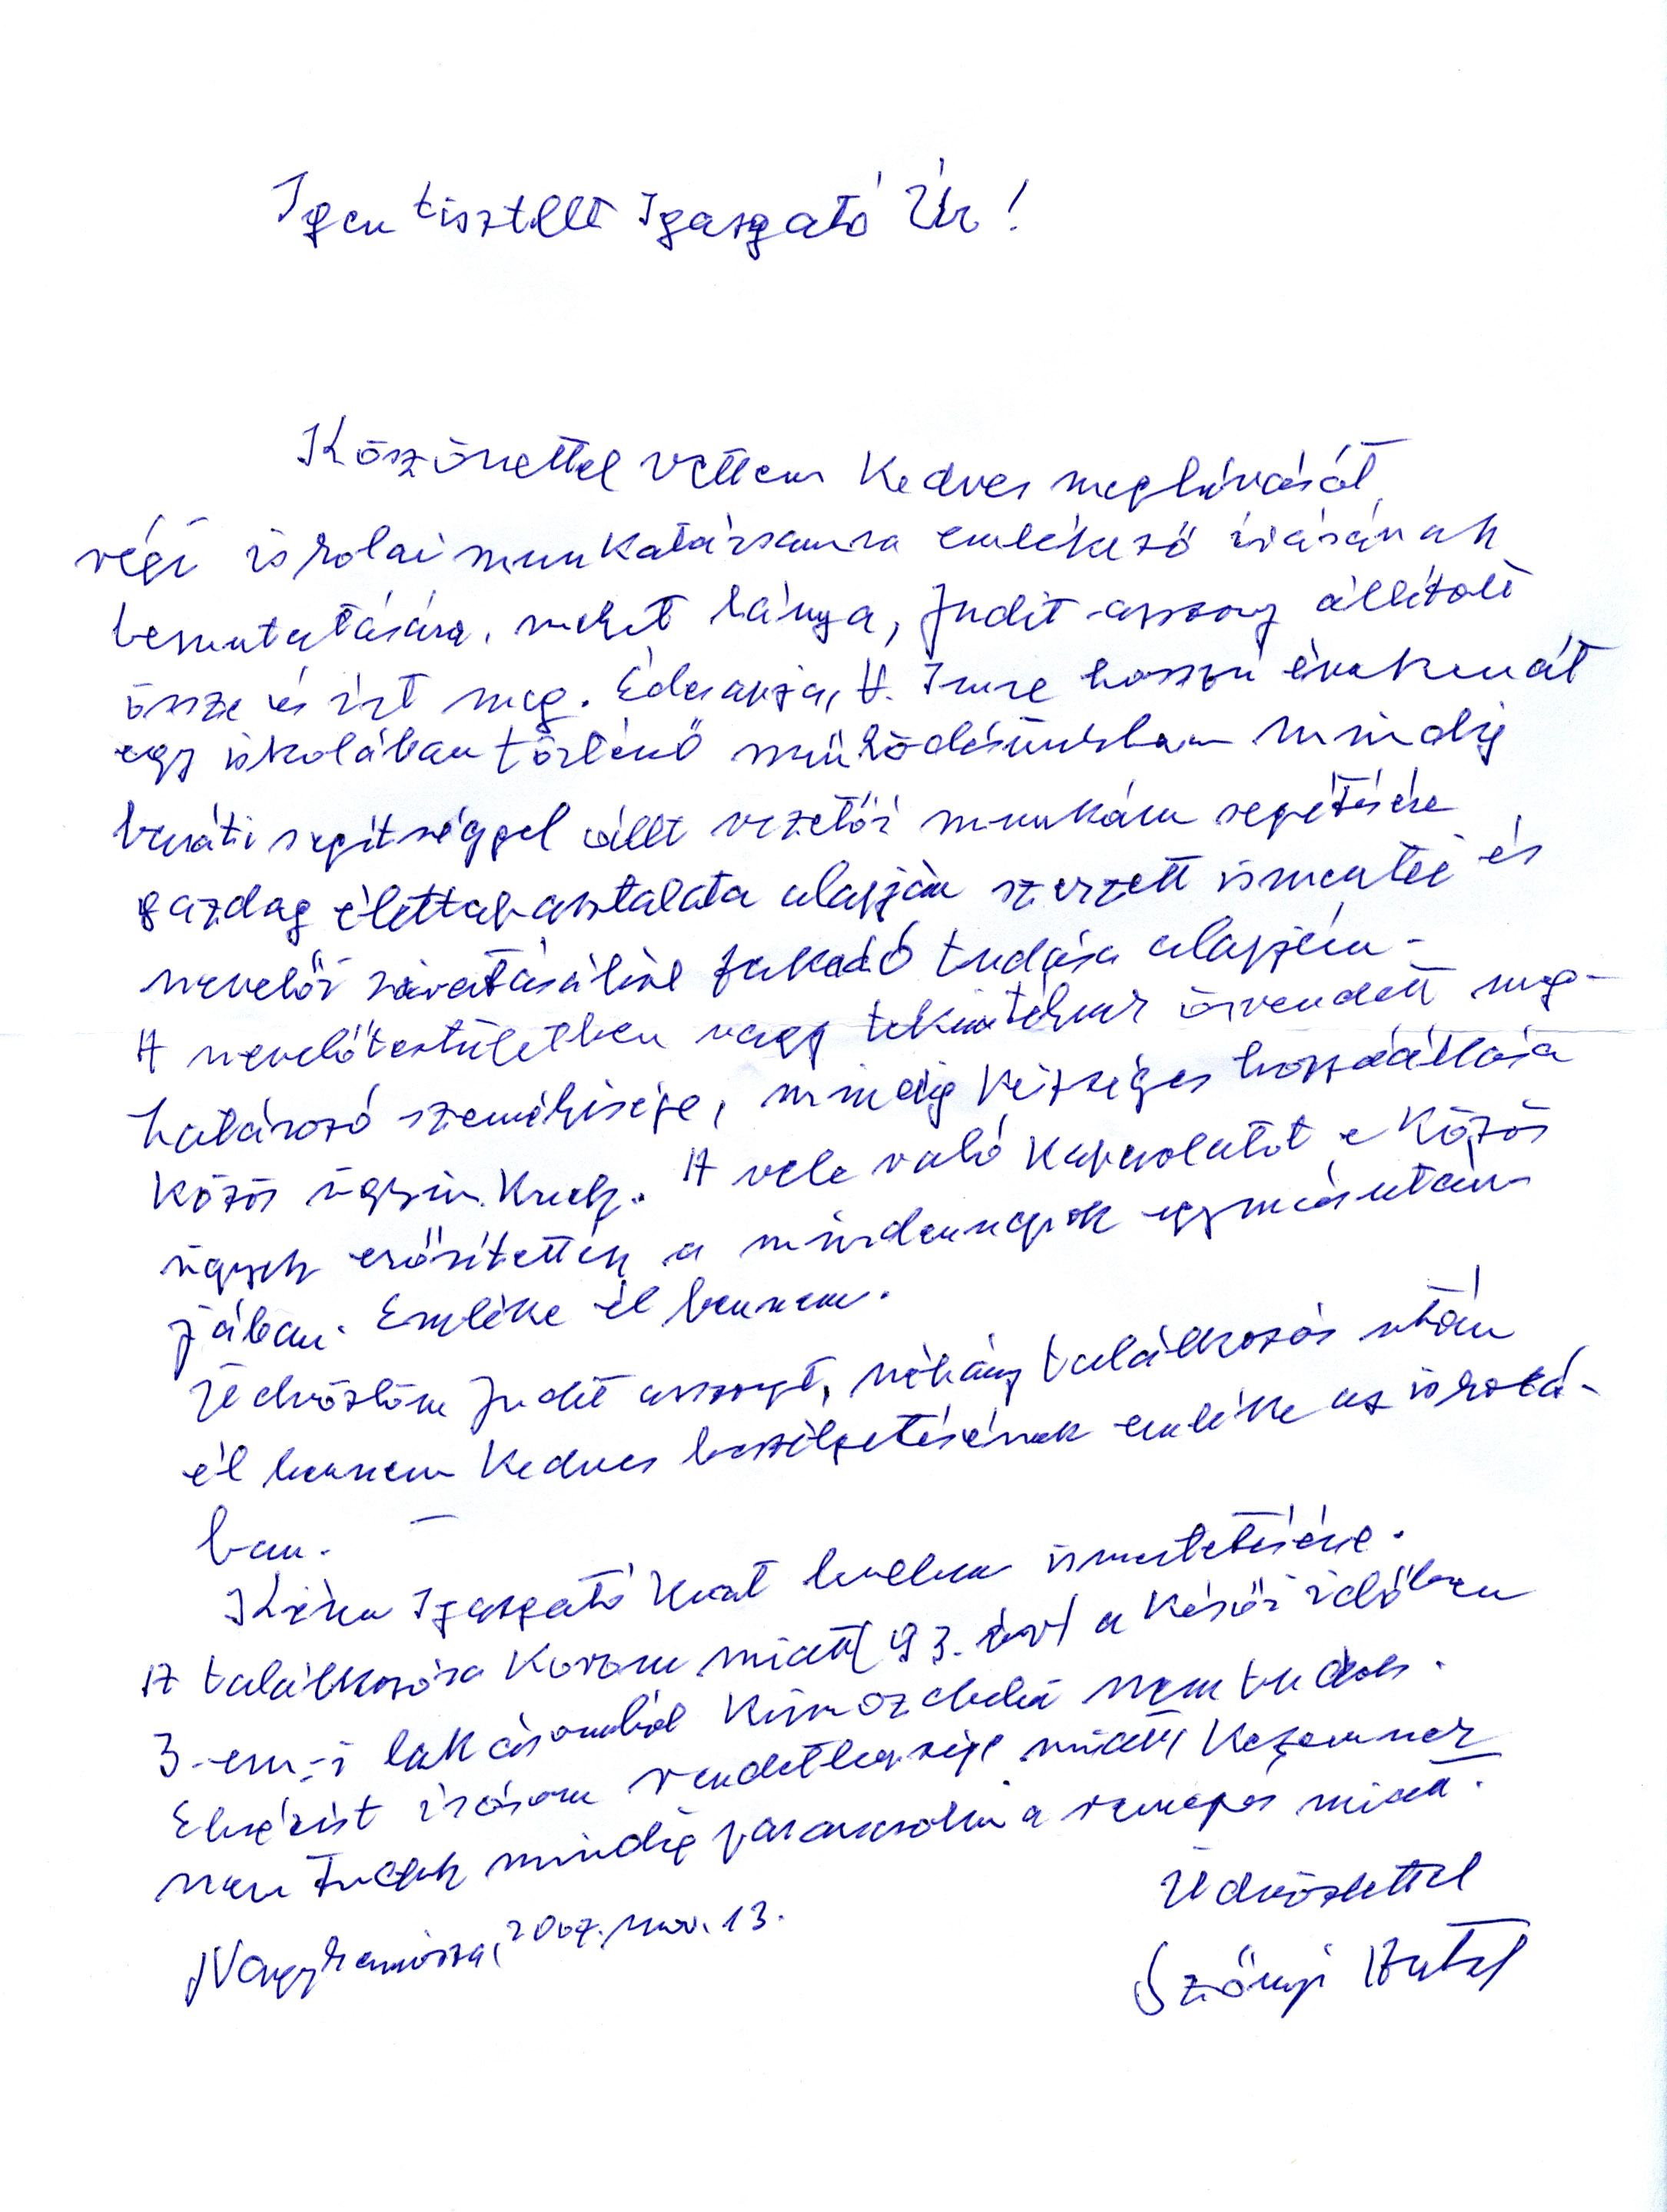 Igen tisztelt Igazgató Úr!
Köszönettel vettem kedves meghívását
régi iskolai munkatársamra emlékező írásának
bemutatására, melyet lánya, Judit asszony állított
össze és írt meg. Édesapja, H. Imre hosszú éveken át
egy iskolában történő működésünkben mindig
baráti segítséggel állt vezetői munkám segítésére
gazdag élettapasztalata alapján szerzett ismeretei és
nevelői hivatásából fakadó tudása alapján.
A nevelőtestületben nagy tekintélynek örvendett meg-
határozó személyisége, mindig készséges hozzáállása
közös ügyeinknek. A vele való kapcsolatot a közös
ügyek erősítették a mindennapok egymásután-
jában. Emléke él bennem.
Üdvözlöm Judit asszonyt, néhány találkozás után
él bennem kedves beszélgetésének emléke az iskolá-
ban.
Kérem Igazgató Urat levelem ismertetésére.
A találkozásra korom miatt (93. év) a késői időben
3-em-i lakásomból kimozdulni nem tudok.
Elnézést írásom rendetlensége miatt kezemnek
nem tudok mindig parancsolni a remegés miatt.
Üdvözlettel
Nagykanizsa, 2007. nov. 13.
Szőnyi Antal